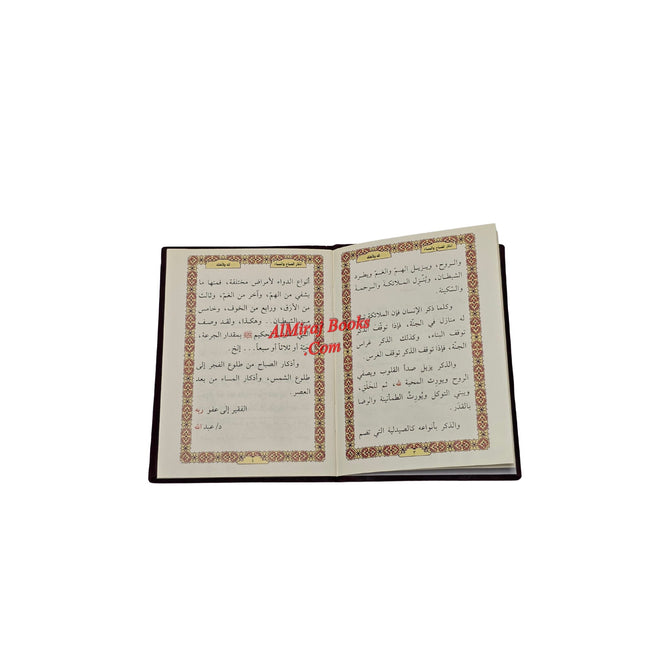 أذكار الصباح والمساء
والروح، ويـزيـل الهـمّ والغـمّ ويـطـرد
الشيطان، ويُنـزل المـلائكـة والـرحمـة
والسكينة
وكلما ذكر الإنسان فإن الملائكة
له منازل في الجنّة، فإذا توقف
توقف البناء، وكذلك الذكر غراس
الجنّة، فإذا توقف الذكر توقف الغرس
والذكر يزيل صدأ القلوب ويصفي
الروح ويورث المحبة لله، ثم للخلق،
ويبني التوكل ويُورثُ الطمأنينة والرضا
بالقدَر.
والذكر بأنواعه كالصيدلية التي تضم
أذكار الصباح والمساء
أنواع الدواء لأمراض مختلفة، فمنها ما
يشفي من الهمّ، وآخر من الغمّ، وثالث
من الأرق، ورابع من الخوف، وخامس
من الشيطان... وهكذا، ولقد وصف
الحكيم ﷺ بمقدار الجرعة،
أو ثلاثاً أو سبعاً... إلخ.
وأذكار الصباح من طلوع الفجر إلى
طلوع الشمس، وأذكار المساء من بعد
العصر.
الفقير إلى عفو ربه
د/ عبد الله
AlMiraj Books
.Com